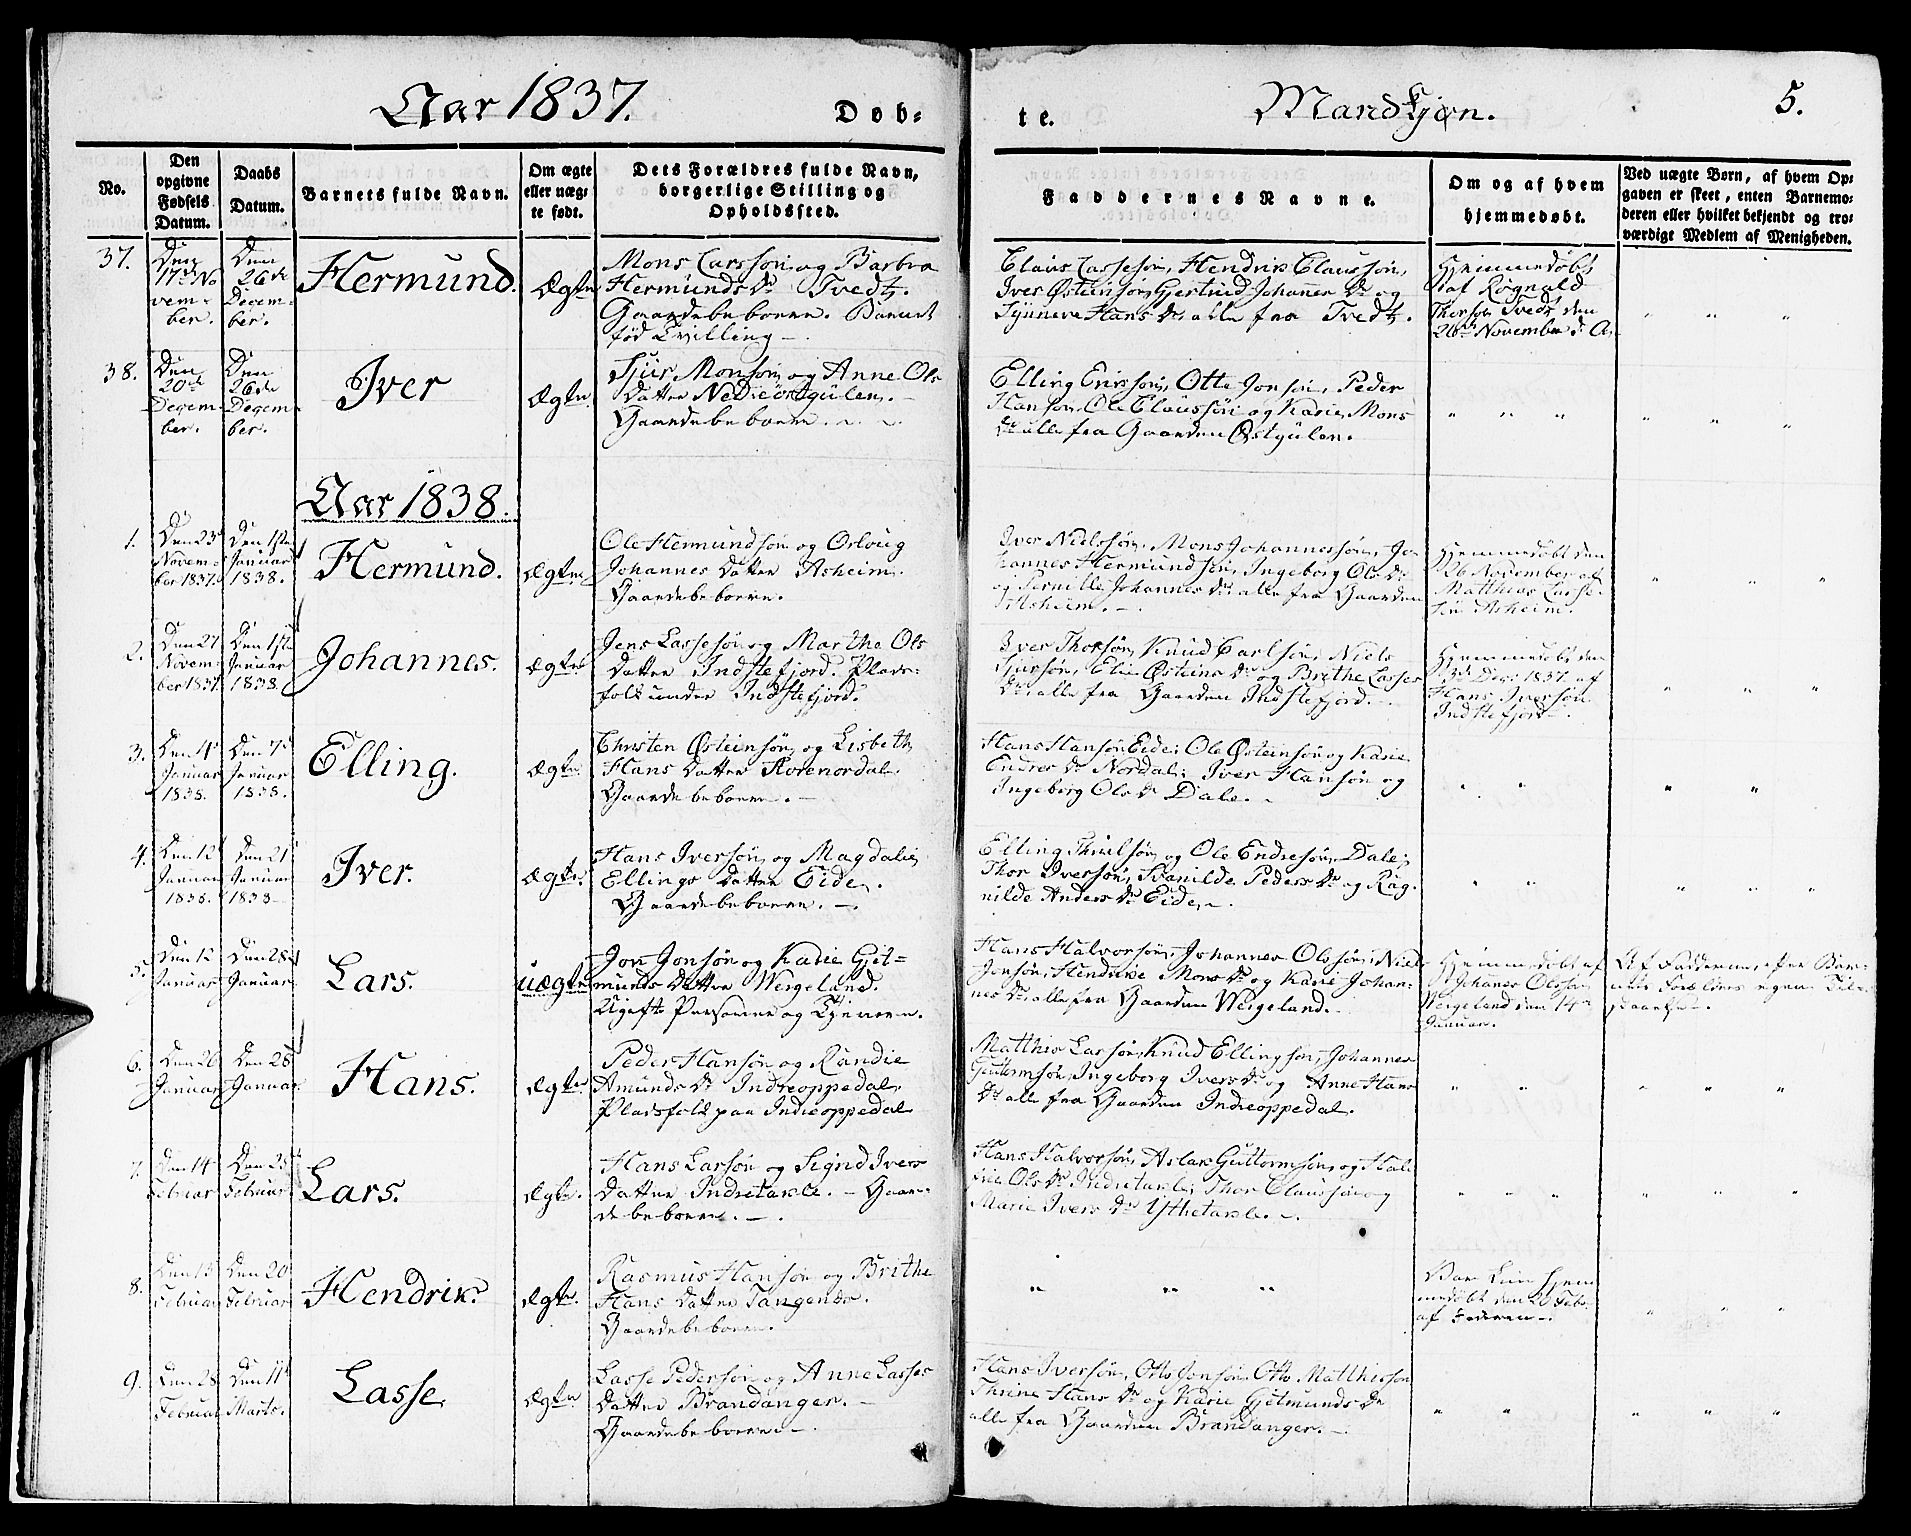 Aar 1837.
Døb=
te.
Mandkjøn.
5.
No.
Den
opgivne
Fødsels
Datum.
Daabs
Datum.
Barnets fulde Navn.
Om ægte
eller uæg=
te født.
Dets Forældres fulde Navn,
borgerlige Stilling og
Opholdssted.
Faddernes Navne.
Om og af hvem
hjemmedøbt.
Ved uægte Børn, af hvem Op=
gaven er skeet, enten Barnemo=
deren eller hvilket bekjendt og tro=
værdigt Medlem af Menigheden.
37.
Den
17de No
vem=
ber.
Den
26de
Decem=
ber.
Hermund.
Ægte
Mons Larssøn og Barbra
Hermunds Dr Tvedt.
Gaardebeboere. Barnet
fød Tvilling
Claus Lassesøn, Hendrik Claussøn,
Iver Østeinsøn, Gjertrud Johannes Dr og
Synneve Hans Dr alle fra Tvedt.
Hjemmedøbt
af Rognald
Thorsøn Tvedt den
26de November d. A.
38.
Den
20de
Decem=
ber.
Den
26de
Decem=
ber.
Iver
Ægte.
Sjur Monsøn og Anne Ols
Datter Nedreøstgulen.
Gaardebeboere.
Elling Erikssøn, Otte Jonsøn, Peder
Hansøn, Ole Claussøn og Karie Mons
Dr alle fra Gaarden Østgulen.
Aar 1838.
1.
Den 23d
Novem=
ber 1837.
Den 1ste
Januar
1838.
Hermund.
Ægte
Ole Hermundsøn og Orloug
Johannes Datter Asheim.
Gaardebeboere.
Iver Nielssøn, Mons Johannessøn, Jo
hannes Hermundsøn, Ingeborg Ols Dr
og Pernille Johannes Dr alle fra Gaarden
Asheim.
Hjemmedøbt den
26 November af
Matthias Lasse
søn Asheim.
2.
Den 27
Novem=
ber 1837.
Den 1ste
Januar
1838.
Johannes.
Ægte
Jens Lassesøn og Marthe Ols
Datter Indstefjord. Plads=
folk under Indstefjord.
Iver Thorsøn, Knud Carlsøn, Niels
Sjursøn, Elie Østeins Dr og Brithe Lasses
Dr alle fra Gaarden Indstefjord.
Hjemmedøbt den
3d Decr 1837 af
Hans Iversøn
Indstefjord.
3.
Den 4d
Januar
1838.
Den 7d
Januar
1838.
Elling.
Ægte
Christen Østeinsøn og Lisbeth
Hans Datter Hovenordal.
Gaardebeboere.
Hans Hansøn Eide, Ole Østeinsøn og Karie
Endres Dr Nordal; Iver Hansøn og
Ingeborg Ols Dr Dale.
4.
Den 12
Januar
1838.
Den 21
Januar
1838
Iver.
Ægte.
Hans Iversøn og Magdalie
Ellings Datter Eide.
Gaardebeboere.
Elling Thuelsøn og Ole Endresøn, Dale;
Thor Iversøn, Svanilde Peders Dr og Rag
nilde Anders Dr Eide.
5.
Den 12
Januar
Den 28
Januar
Lars.
uægte
Jon Jonsøn og Karie Gjet=
munds Datter Weigeland.
Ugifte Personer og Tjenere.
Hans Halvorsøn, Johannes Olssøn, Niels
Jonsøn, Hendrike Mons Dr og Karie Johan=
nes Dr alle fra Gaarden Weigeland.
Hjemmedøbt af
Johanes Olssøn
Weigeland den 14de
Januar.
Af Fadderne, efter Bar=
nets Forældres egen Tils
staaelse.
6.
Den 26
Januar
Den 28
Januar
Hans.
Ægte.
Peder Hansøn og Randie
Amunds Dr Indreoppedal.
Pladsfolk paa Indreoppedal
Matthis Lassøn, Knud Ellingsøn, Johannes
Guttormsøn, Ingeborg Ivers Dr og Anne Hans
Dr alle fra Gaarden Indreoppedal.
7.
Den 14
Februar
Den 25
Februar
Lars.
Ægte.
Hans Larsøn og Signd Ivers
Datter Indretakle. Gaar=
debeboere.
Hans Halvorsøn, Aslak Guttormsøn og Kale
Ols Dr Indretakle; Thor Claussøn og
Marie Ivers Dr Yttretakle.
8.
Den 15
Februar
Den 20
Februar
Hendrik.
Ægte.
Rasmus Hansøn og Brithe
Hans Datter Tangende.
Gaardebeboere.
Var kun hjem
medøbt den 20 Febr
af Faderen.
9.
Den 28
Februar
Den 11d
Marts.
Lasse.
Ægte
Lasse Pedersøn og Anne Lasses
Datter Brandanger.
Gaardebeboere
Hans Iversøn, Otto Jonsøn, Otto Matthissøn
Thrine Hans Dr og Karie Gjetmunds Dr
alle fra Gaarden Brandanger.